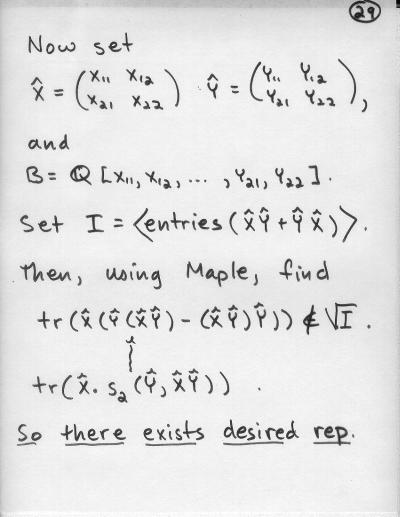 29
Now set
X̂ = (x₁₁ x₁₂ / x₂₁ x₂₂) Ŷ = (Y₁₁ Y₁₂ / Y₂₁ Y₂₂),
and
B = ℚ [x₁₁, x₁₂, ... , Y₂₁, Y₂₂].
Set I = ⟨entries (X̂Ŷ + ŶX̂)⟩.
Then, using Maple, find
tr(X̂(Ŷ(X̂Ŷ) - (X̂Ŷ)Ŷ)) ∉ √I.
tr(X̂. S₂ (Ŷ, X̂Ŷ)).
So there exists desired rep.